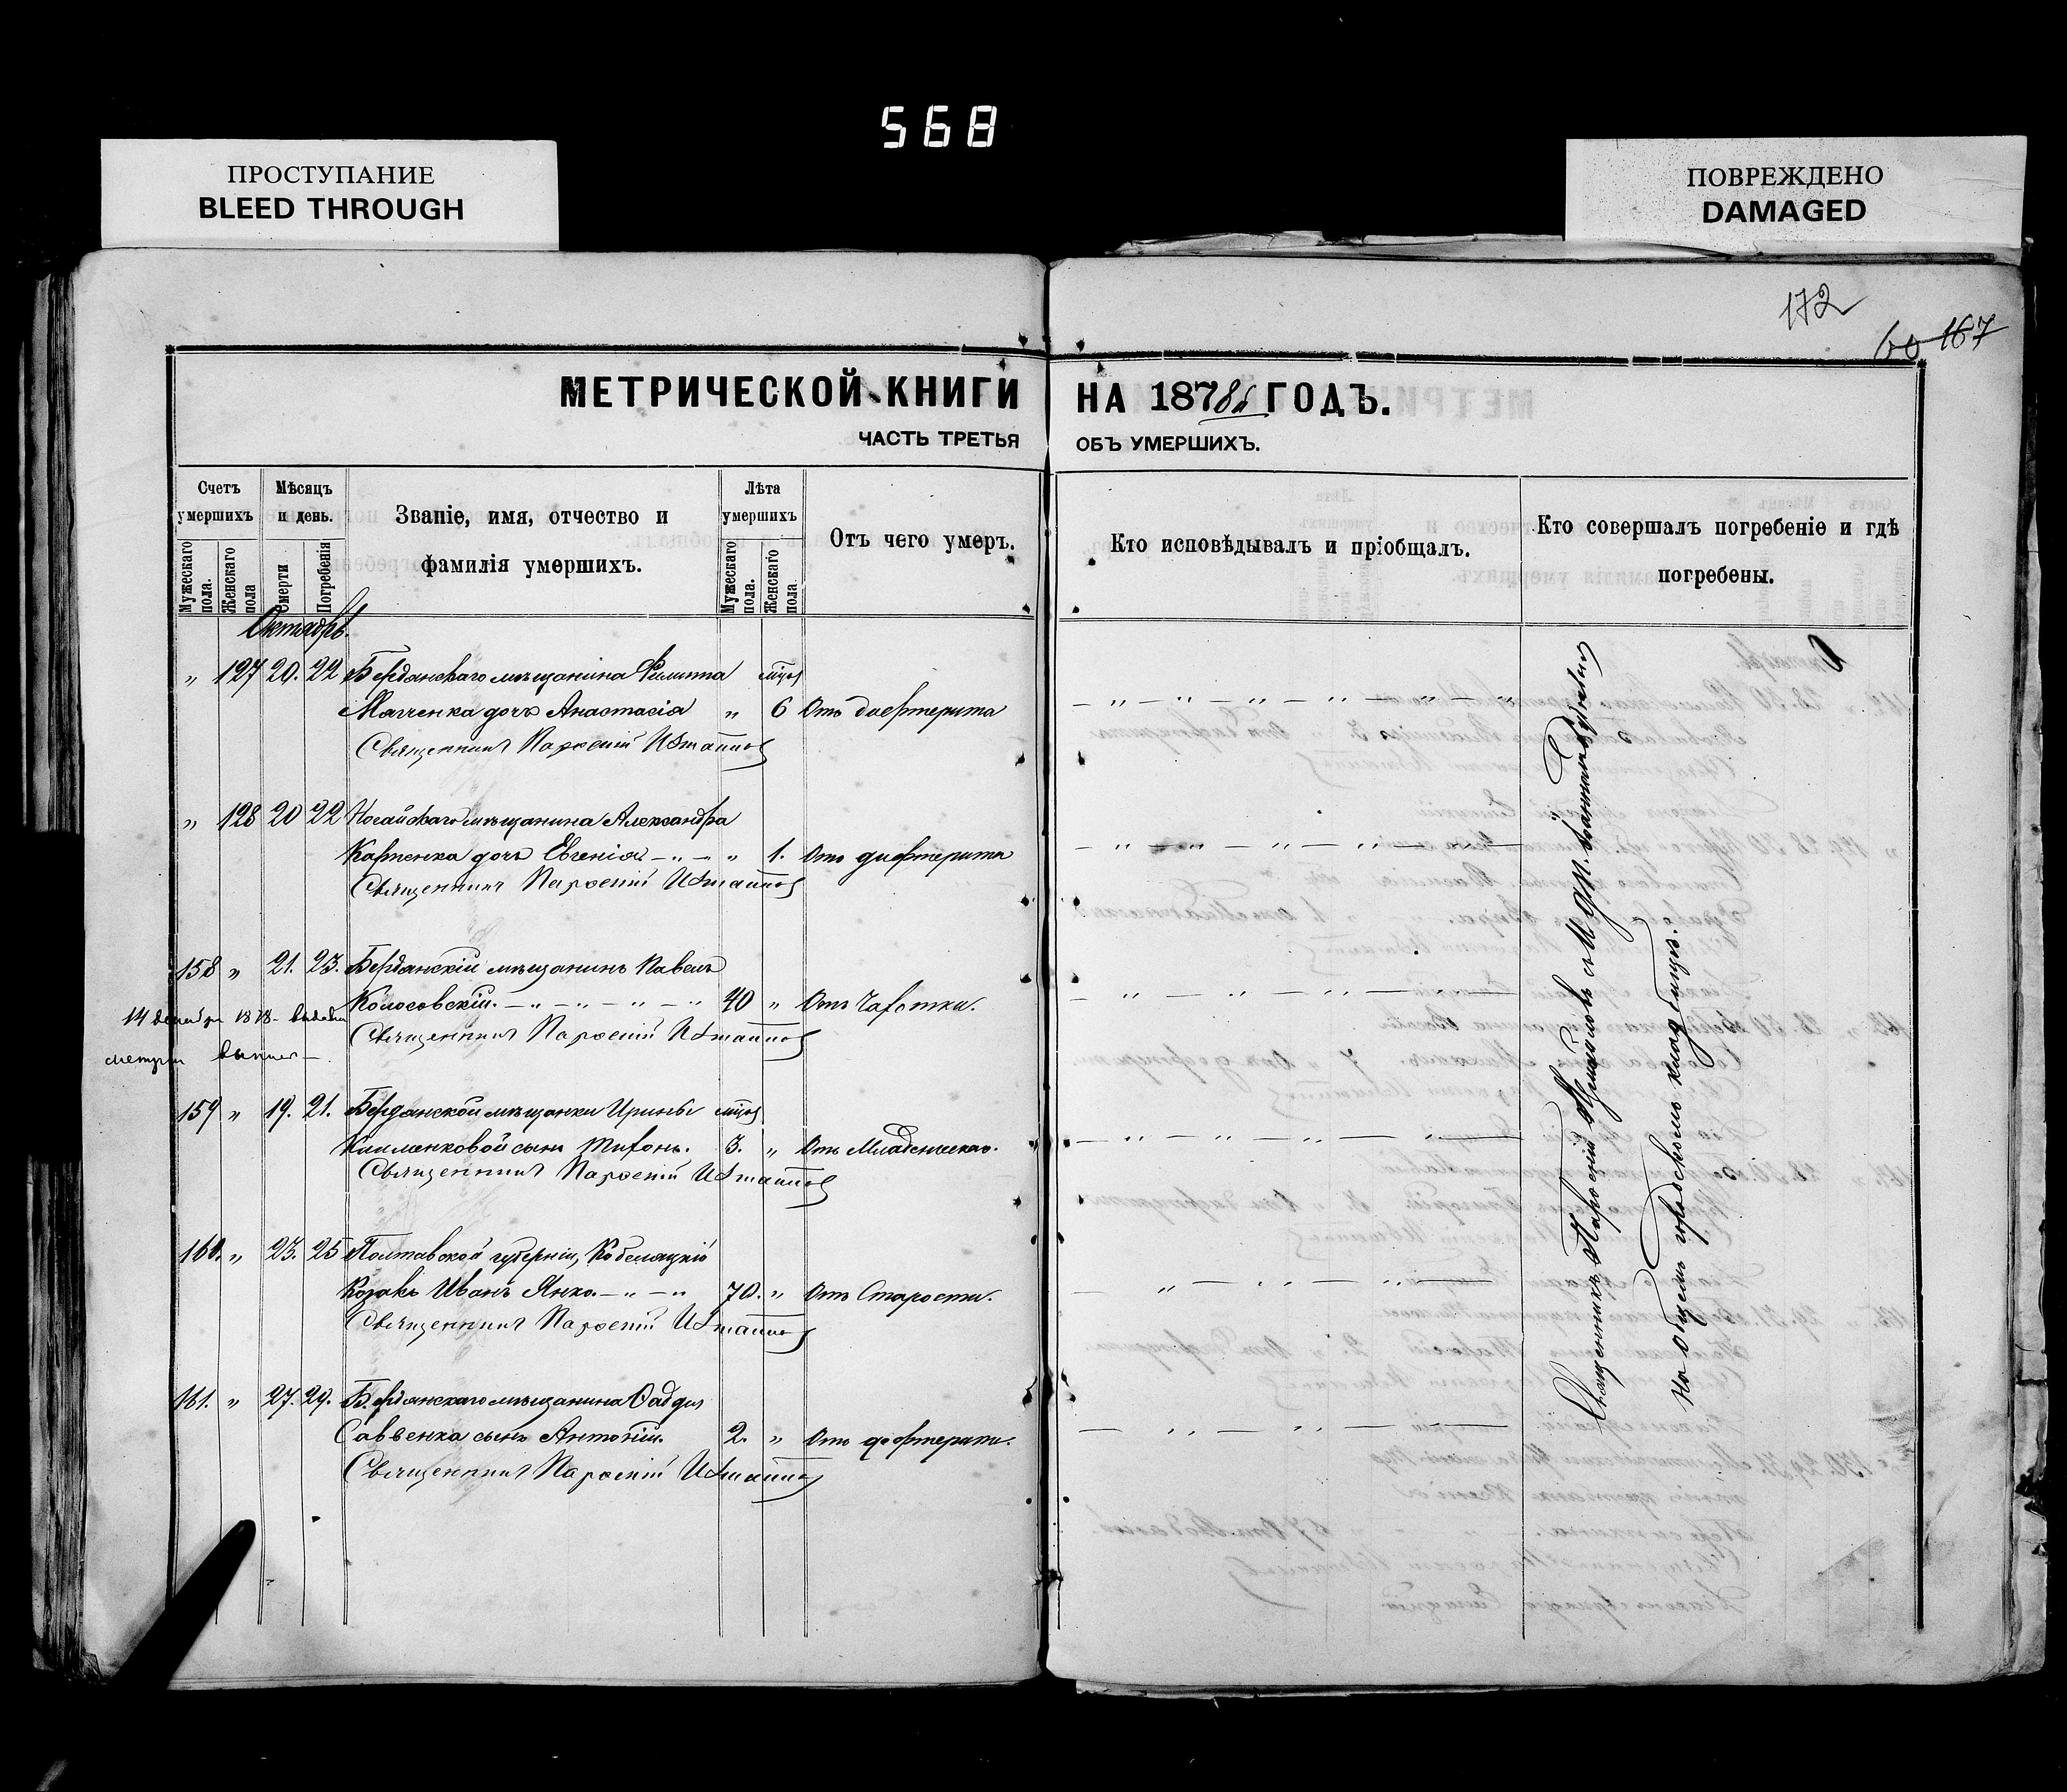 568
ПРОСТУПАНИЕ
BLEED THROUGH
ПОВРЕЖДЕНО
DAMAGED
172
167
МЕТРИЧЕСКОЙ КНИГИ НА 1878й ГОДЪ.
ЧАСТЬ ТРЕТЬЯ ОБЪ УМЕРШИХЪ.
Счетъ умершихъ
Мужескаго пола.
Женскаго пола
Мѣсяцъ и день.
Смерти
Погребенія
Званіе, имя, отчество и
фамилія умершихъ.
Лѣта умершихъ
Мужескаго пола.
Женскаго пола
Отъ чего умеръ.
Кто исповѣдывалъ и пріобщалъ.
Кто совершалъ погребеніе и гдѣ
погребены.
Октябрь
" 127 20. 22 Бердянскаго мѣщанина Филиппа
дочь Анастасія " 6 Отъ дифтерита
Священникъ Пароеній
" 128 20 22 Ногайскаго мѣщанина Александра
Карпенка дочь Евгенія - " - " 1. Отъ дифтерита
Священникъ Пароеній
158 " 21. 23. Бердянскій мѣщанинъ Павелъ
Колосовскій. - " - " - " - " 40 " Отъ Чахотки.
Священникъ Пароеній
14 1878
159 " 19. 21. Бердянской мѣщанки Ирины
Клименковой сынъ Тихонъ. 3. " Отъ Младенческаго.
Священникъ Пароеній
160. " 23. 25 Полтавской губерніи, Кобеляцкій
Козакъ Иванъ Янко. - " - " 70. " Отъ Старости.
Священникъ Пароеній
161. " 27. 29. Бердянскаго мѣщанина Фаддея
Саввенка сынъ Антоній. 2. " Отъ дифтерита.
Священникъ Пароеній
Священникъ Пароеній
На общемъ городскомъ кладбищѣ.